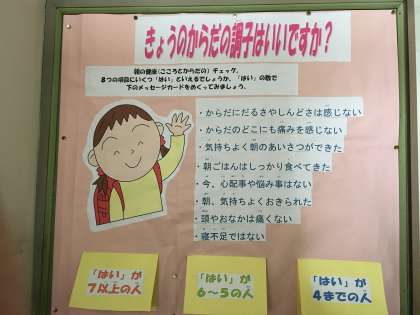 きょうのからだの調子はいいですか？
朝の健康(こころとからだの)チェック。
８つの項目にいくつ「はい」といえるでしょうか。「はい」の数で
下のメッセージカードをめくってみましょう。
・からだにだるさやしんどさは感じない
・からだのどこにも痛みを感じない
・気持ちよく朝のあいさつができた
・朝ごはんはしっかり食べてきた
・今、心配事や悩み事はない
・朝、気持ちよくおきられた
・頭やおなかは痛くない
・寝不足ではない
「はい」が
７以上の人
「はい」が
６～５の人
「はい」が
４までの人